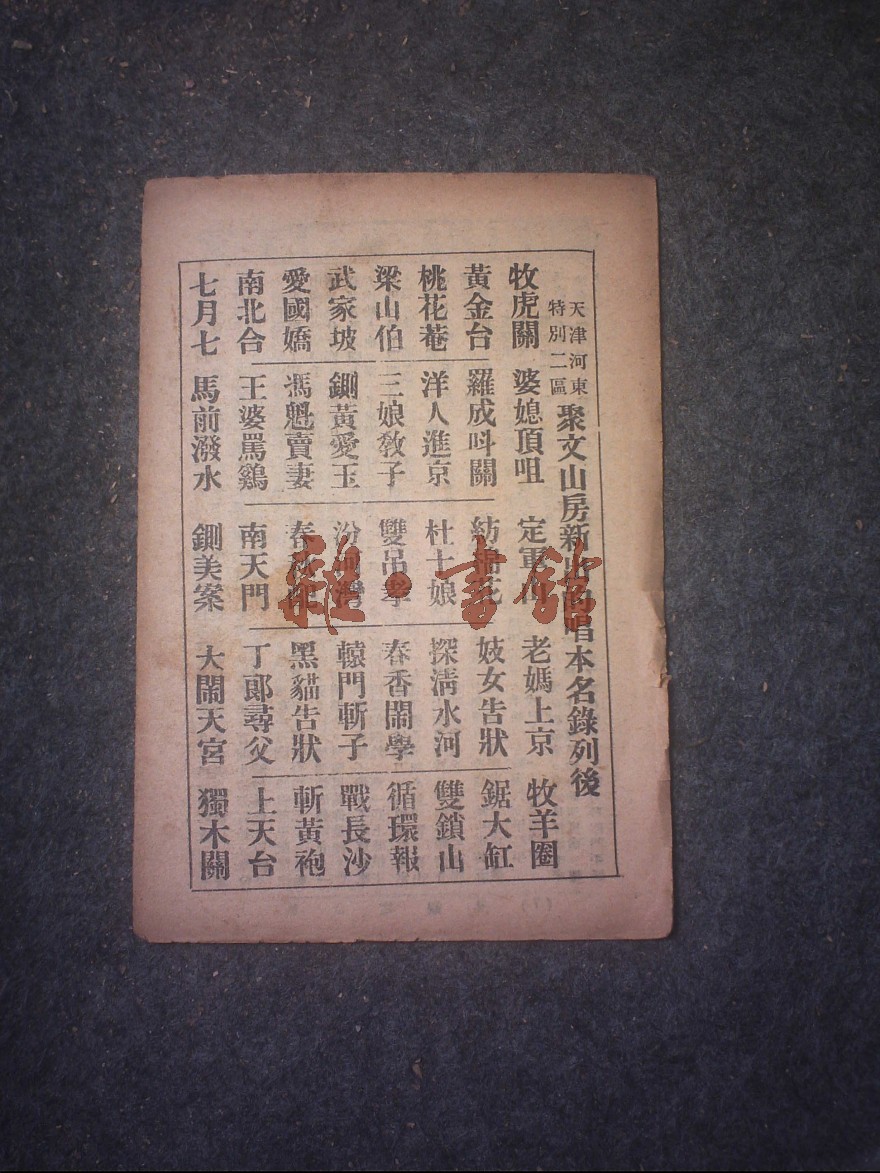 天津河東
特別二區
聚文山房新出唱本名錄列後
牧虎關 婆媳頂咀 定軍山 老媽上京 牧羊圈
黃金台 羅成呌關 紡棉花 妓女告狀 鋸大缸
桃花菴 洋人進京 杜十娘 探淸水河 雙鎖山
梁山伯 三娘敎子 雙吊孝 春香閙學 循環報
武家坡 鍘黃愛玉 汾河灣 轅門斬子 戰長沙
愛國嬌 馮魁賣妻 春秋配 黑貓告狀 斬黃袍
南北合 王婆罵鷄 南天門 丁郞尋父 上天台
七月七 馬前潑水 鍘美案 大閙天宮 獨木關
雜·書館